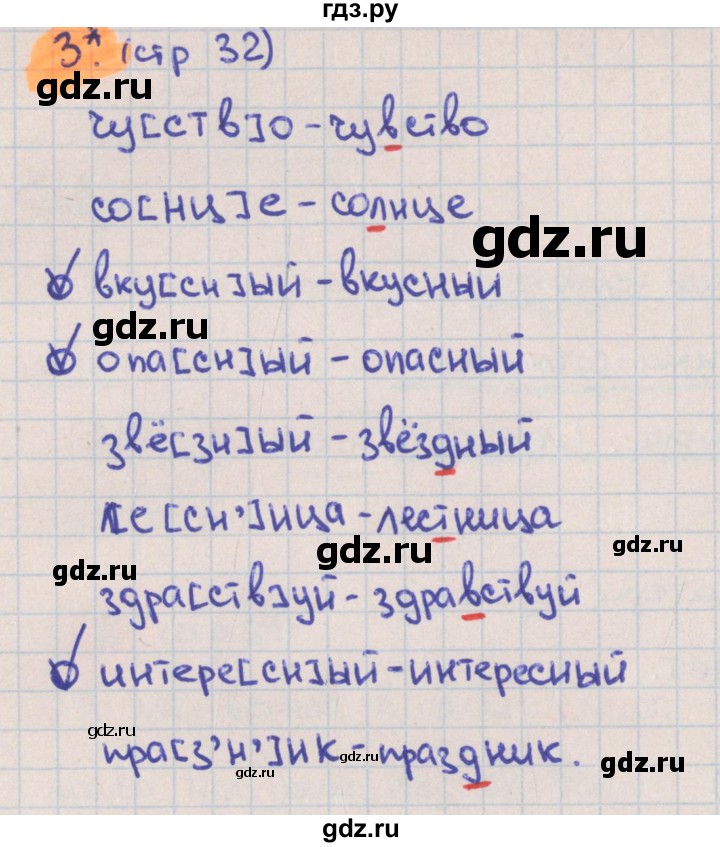 гдз.ру
3*. (стр 32)
gdz.ru
чу[ств]о - чувство
со[нц]е - солнце
gdz.ru
вку[сн]ый - вкусный
gdz.ru
опа[сн]ый - опасный
звё[зн]ый - звёздный
ле[сн']ица - лестница
gdz.ru
gdz.ru
gdz.ru
здра[ств]уй - здравствуй
интере[сн]ый - интересный
gdz.ru
gdz.ru
пра[з'н']ик - праздник.
gdz.ru
gdz.ru